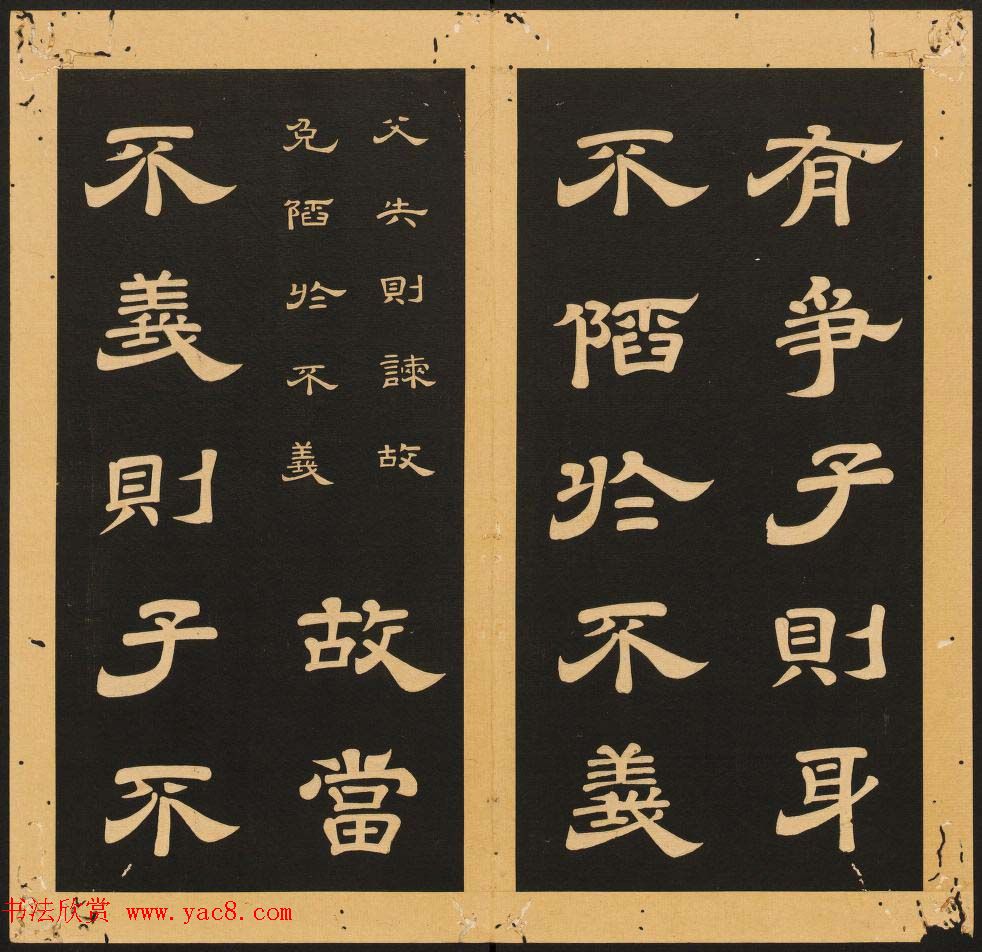 有爭子則身
不陷於不義
父失則諫故
免陷於不義
故當
不義則子不
书法欣赏 www.yac8.com